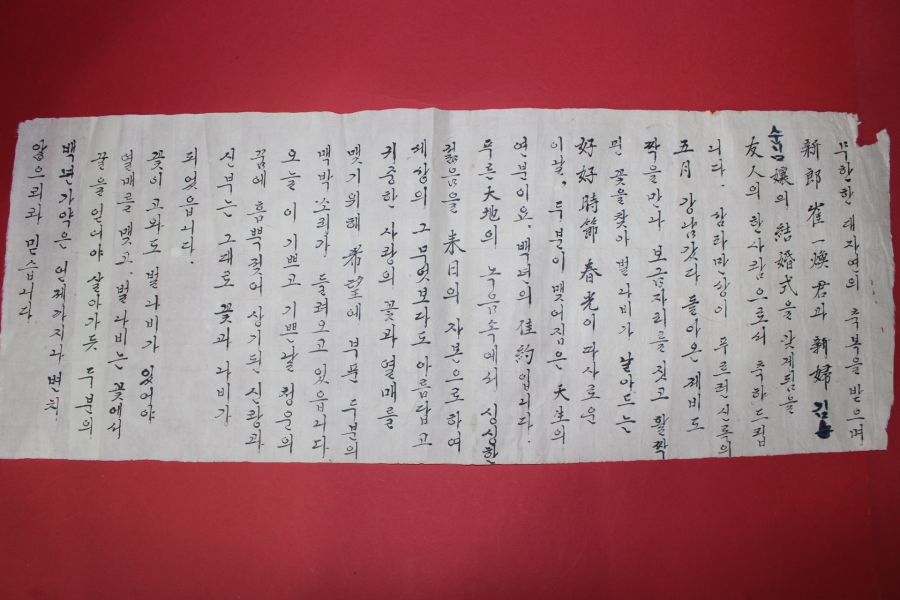 무한한 대자연의 축복을 받으며
新郎 崔一煥君과 新婦 김
孃의 結婚式을 맞게됨을
友人의 한사람으로서 축하드립
니다. 삼라만상이 푸르런 신록의
五月 강남갔다 돌아온 제비도
짝을만나 보금자리를 짓고 활짝
핀 꽃을찾아 벌나비가 날아드는
好好時節 春光이 따사로운
이날, 두분이 맺어짐은 天生의
연분이요. 백년의 佳約입니다.
푸른大地의 녹음속에서 싱싱한
젊음을 来日의 자본으로하여
세상의 그무엇보다도 아름답고
귀중한 사랑의 꽃과 열매를
맺기위해 希望에 부푼 두분의
맥박소리가 들려오고 있읍니다.
오늘 이 기쁘고 기쁜날 청운의
꿈에 흠뻑젖어 상기된 신랑과
신부는 그대로 꽃과 나비가
되었읍니다.
꽃이 고와도 벌나비가 있어야
열매를 맺고. 벌나비는 꽃에서
꿀을 얻어야 살아가듯 두분의
백년가약은 언제까지나 변치
않으리라 믿습니다